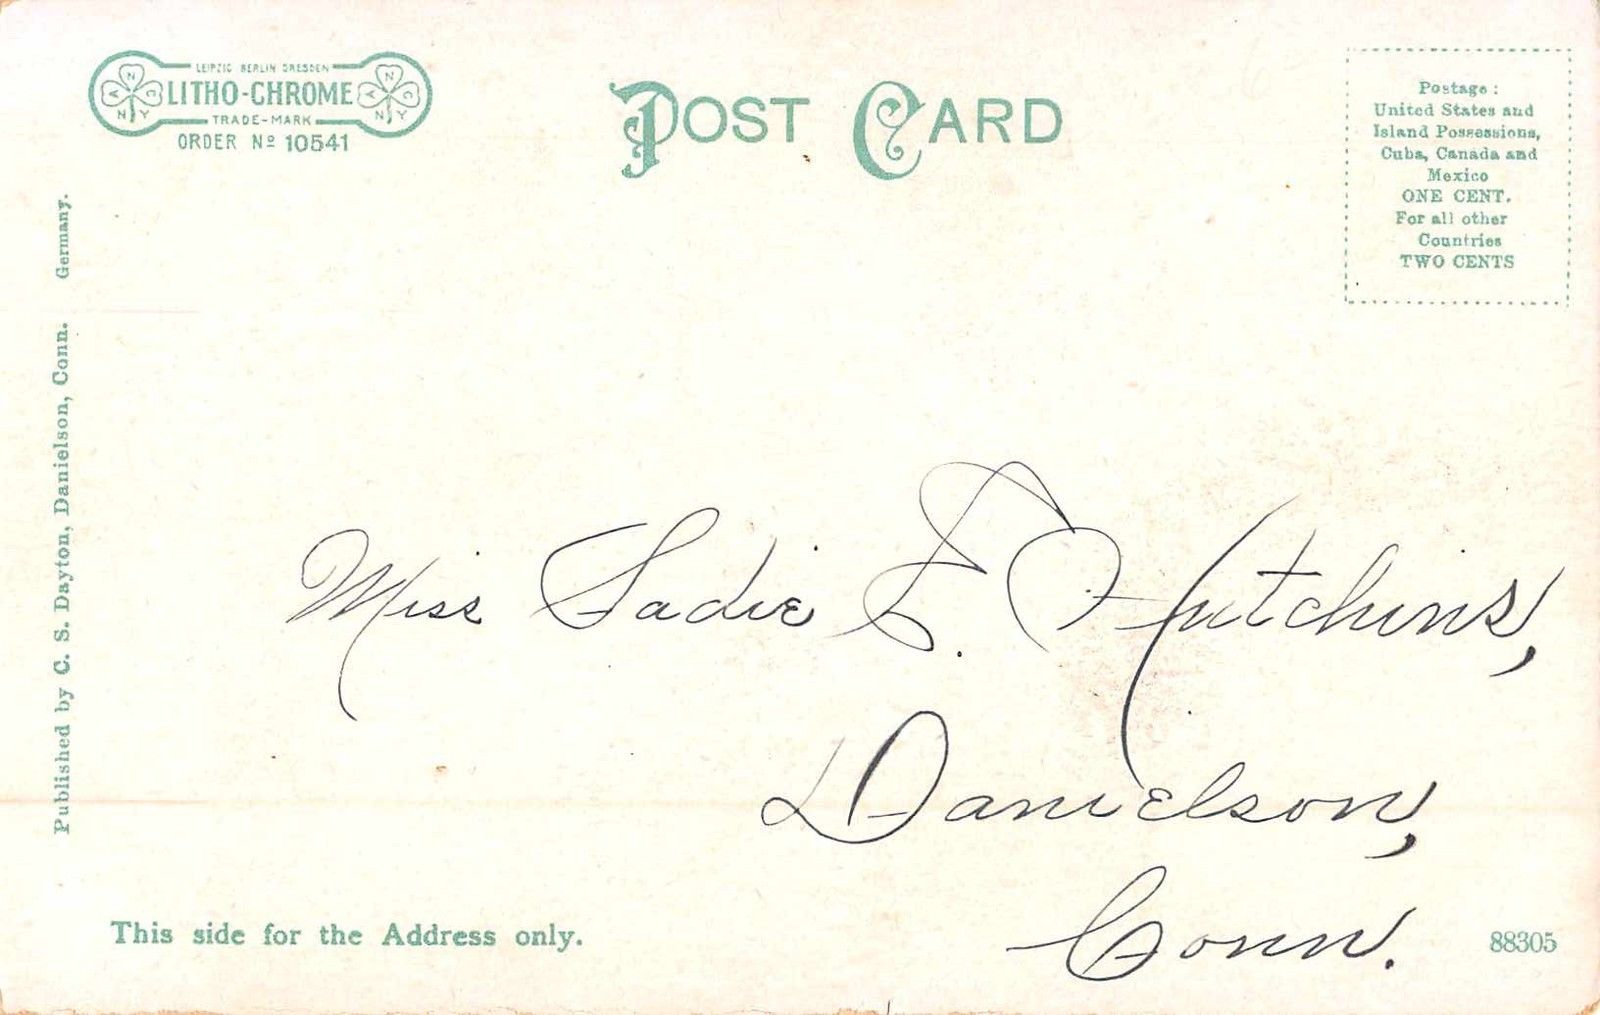 LEIPZIG BERLIN DRESDEN
LITHO-CHROME
TRADE-MARK
ORDER Nº 10541
POST CARD
Postage :
United States and
Island Possessions,
Cuba, Canada and
Mexico
ONE CENT.
For all other
Countries
TWO CENTS
Published by C. S. Dayton, Danielson, Conn. Germany.
Miss Sadie E. Hutchins,
Danielson,
Conn.
This side for the Address only.
88305